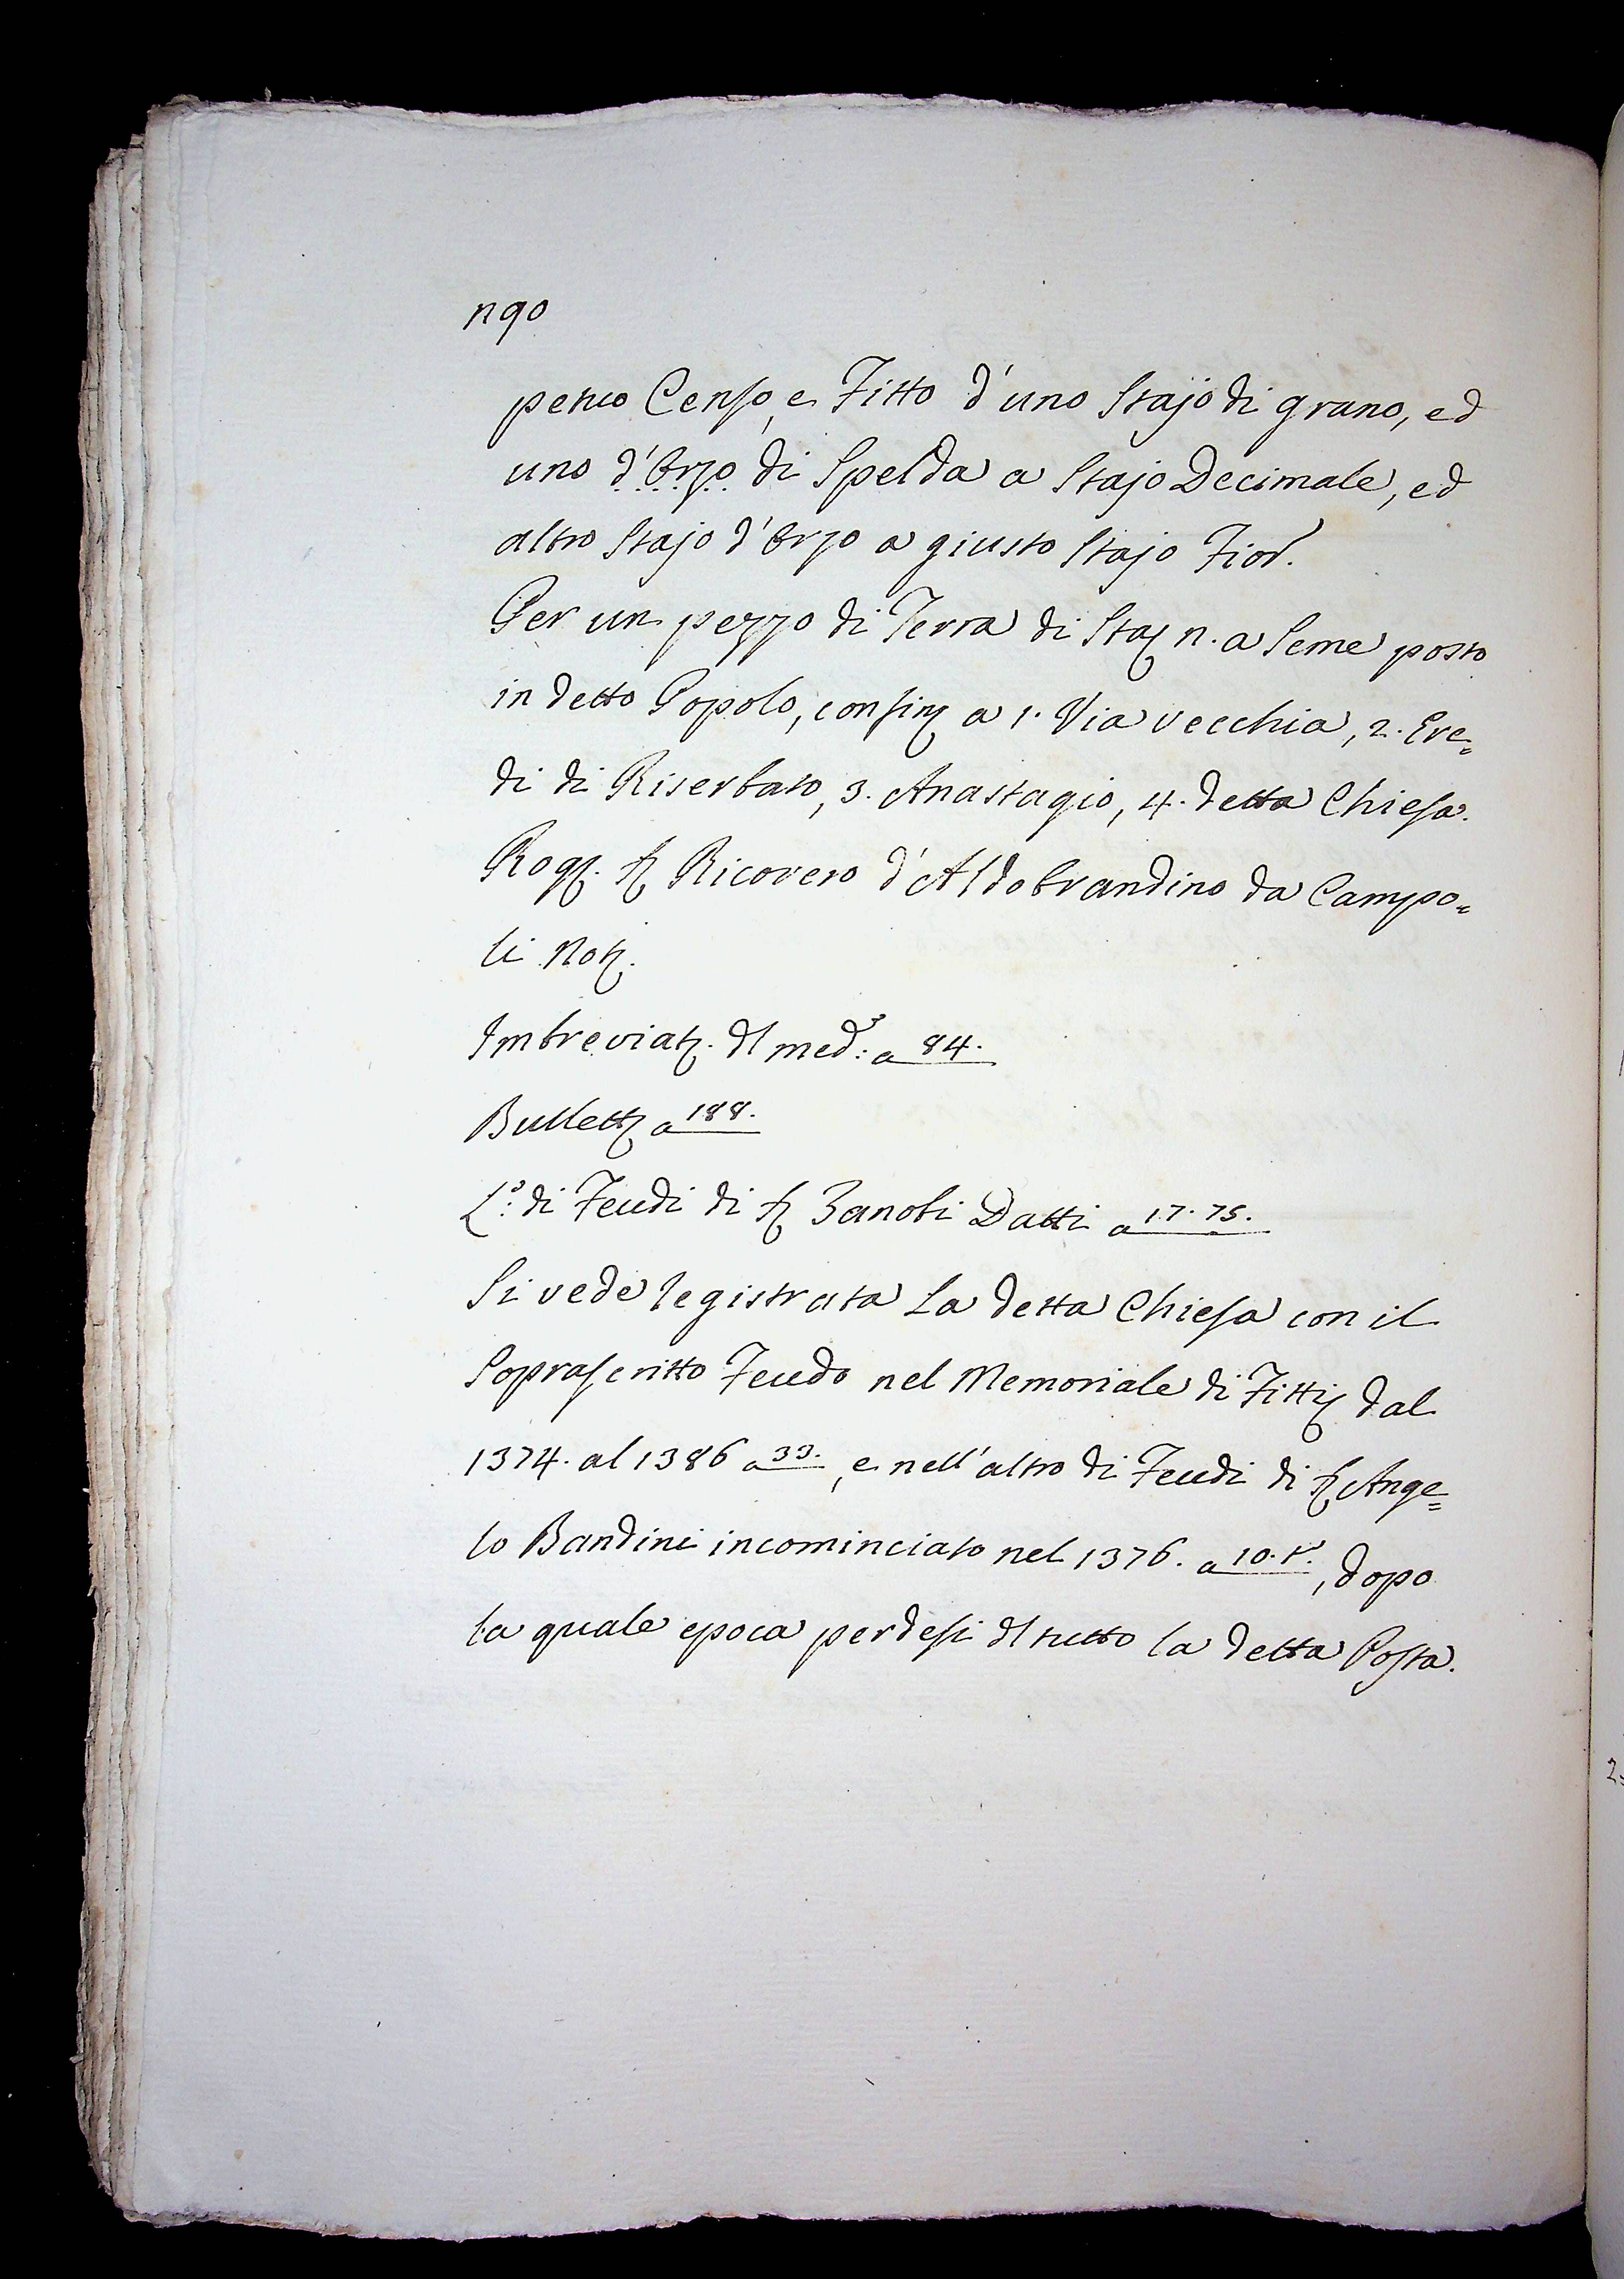 n90
petuo Censo, e Fitto d'uno Stajo di grano, ed
uno d'Orzo di Spelda a Stajo Decimale, ed
altro Stajo d'Orzo a giusto Stajo Fior.
Per un pezzo di Terra di Staj n. a Seme posto
in detto Popolo, confin a 1. Via vecchia, 2. Ere=
di di Riserbato, 3. Anastagio, 4. detta Chiesa.
Rog. Ricovero d'Aldobrandino da Campo=
li Not.
Imbreviat. dl med: a 84.
Bullett a 188.
L.o di Feudi di Zanobi Datti a 17. 75.
Si vede legistrata La detta Chiesa con il
Soprascritto Feudo nel Memoriale di Fitti dal
1374. al 1386 a 33., e nell'altro di Feudi di Ange=
lo Bandini incominciato nel 1376. a 10. , dopo
la quale epoca perdesi dl tutto la detta Posta.